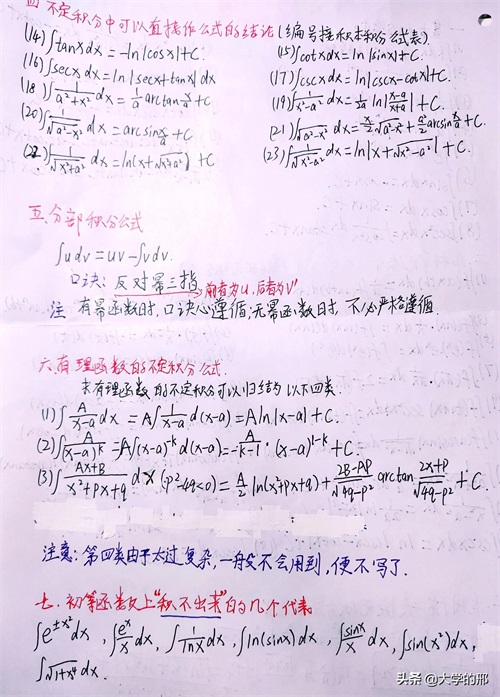 四 不定积分中可以直接作公式的结论(编号接积本积分公式表)
(14) ∫tanxdx = -ln|cosx|+C. (15) ∫cotxdx = ln|sinx|+C.
(16) ∫secxdx = ln|secx+tanx| dx (17) ∫cscxdx = ln|cscx-cotx|+C.
(18) ∫1/(a²+x²) dx = 1/a arctan x/a + C (19) ∫1/(x²-a²) dx = 1/2a ln|(x-a)/(x+a)| + C.
(20) ∫1/√(a²-x²) dx = arcsin x/a + C (21) ∫√(a²-x²) dx = x/2 √(a²-x²) + a²/2 arcsin x/a + C
(22) ∫1/√(x²+a²) dx = ln(x+√(x²+a²)) + C (23) ∫1/√(x²-a²) dx = ln|x+√(x²-a²)| + C.
五.分部积分公式
∫udv = uv-∫vdv.
口诀: 反对幂三指 前者为u,后者为v'
注 有幂函数时,口诀必遵循,无幂函数时,不必严格遵循.
六.有理函数的不定积分公式.
求有理函数的不定积分可以归结为以下四类.
(1) ∫A/(x-a) dx = A∫1/(x-a) d(x-a) = Aln|x-a|+C.
(2) ∫A/(x-a)^k = A∫(x-a)^-k d(x-a) = -A/(k-1) · (x-a)^(1-k) + C.
(3) ∫(Ax+B)/(x²+px+q) dx (p²-4q<0) = A/2 ln(x²+px+q) + (2B-AP)/√(4q-p²) arctan (2x+p)/√(4q-p²) + C.
注意: 第四类由于太过复杂,一般又不会用到,便不写了.
七.初等函数上"积不出来"的几个代表
∫e^(±x²)dx, ∫e^x/x dx, ∫1/lnx dx, ∫ln(sinx)dx, ∫sinx/x dx, ∫sin(x²)dx,
∫√(1+x⁴) dx.
头条 @大学的邢